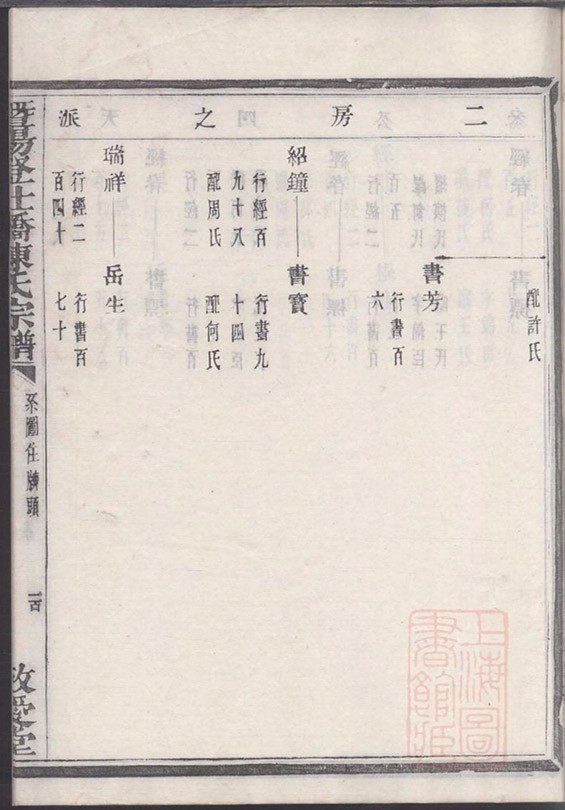 二房之派
配許氏
書芳
行書百
六
紹鐘
行經百
九十八
配周氏
書寶
行書九
十四
配何氏
瑞祥
行經二
百四十
岳生
行書百
七十
暨陽登仕橋陳氏宗譜
系圖住牌頭
一百
敬愛堂
上海圖書館藏